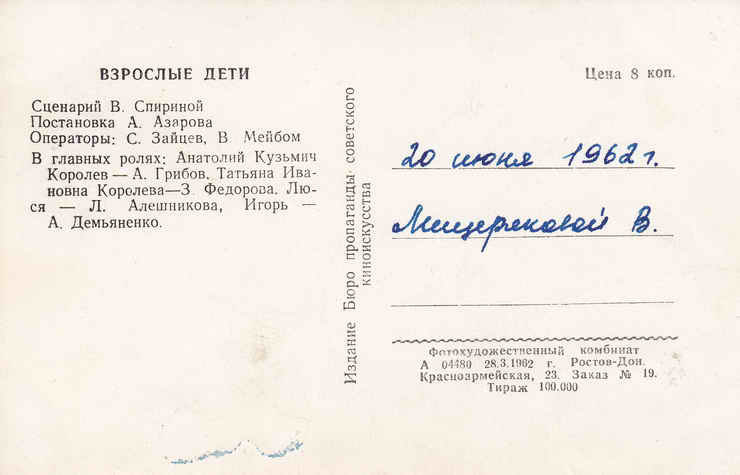 ВЗРОСЛЫЕ ДЕТИ
Сценарий В. Спириной
Постановка А. Азарова
Операторы: С. Зайцев, В. Мейбом
В главных ролях: Анатолий Кузьмич
Королев — А. Грибов, Татьяна Ива-
новна Королева—З. Федорова, Лю-
ся — Л. Алешникова, Игорь —
А. Демьяненко.
Издание Бюро пропаганды советского
киноискусства
Цена 8 коп.
20 июня 1962 г.
Мещеряковой В.
Фотохудожественный комбинат
А 04480 28.3.1962 г. Ростов-Дон.
Красноармейская, 23. Заказ № 19.
Тираж 100.000